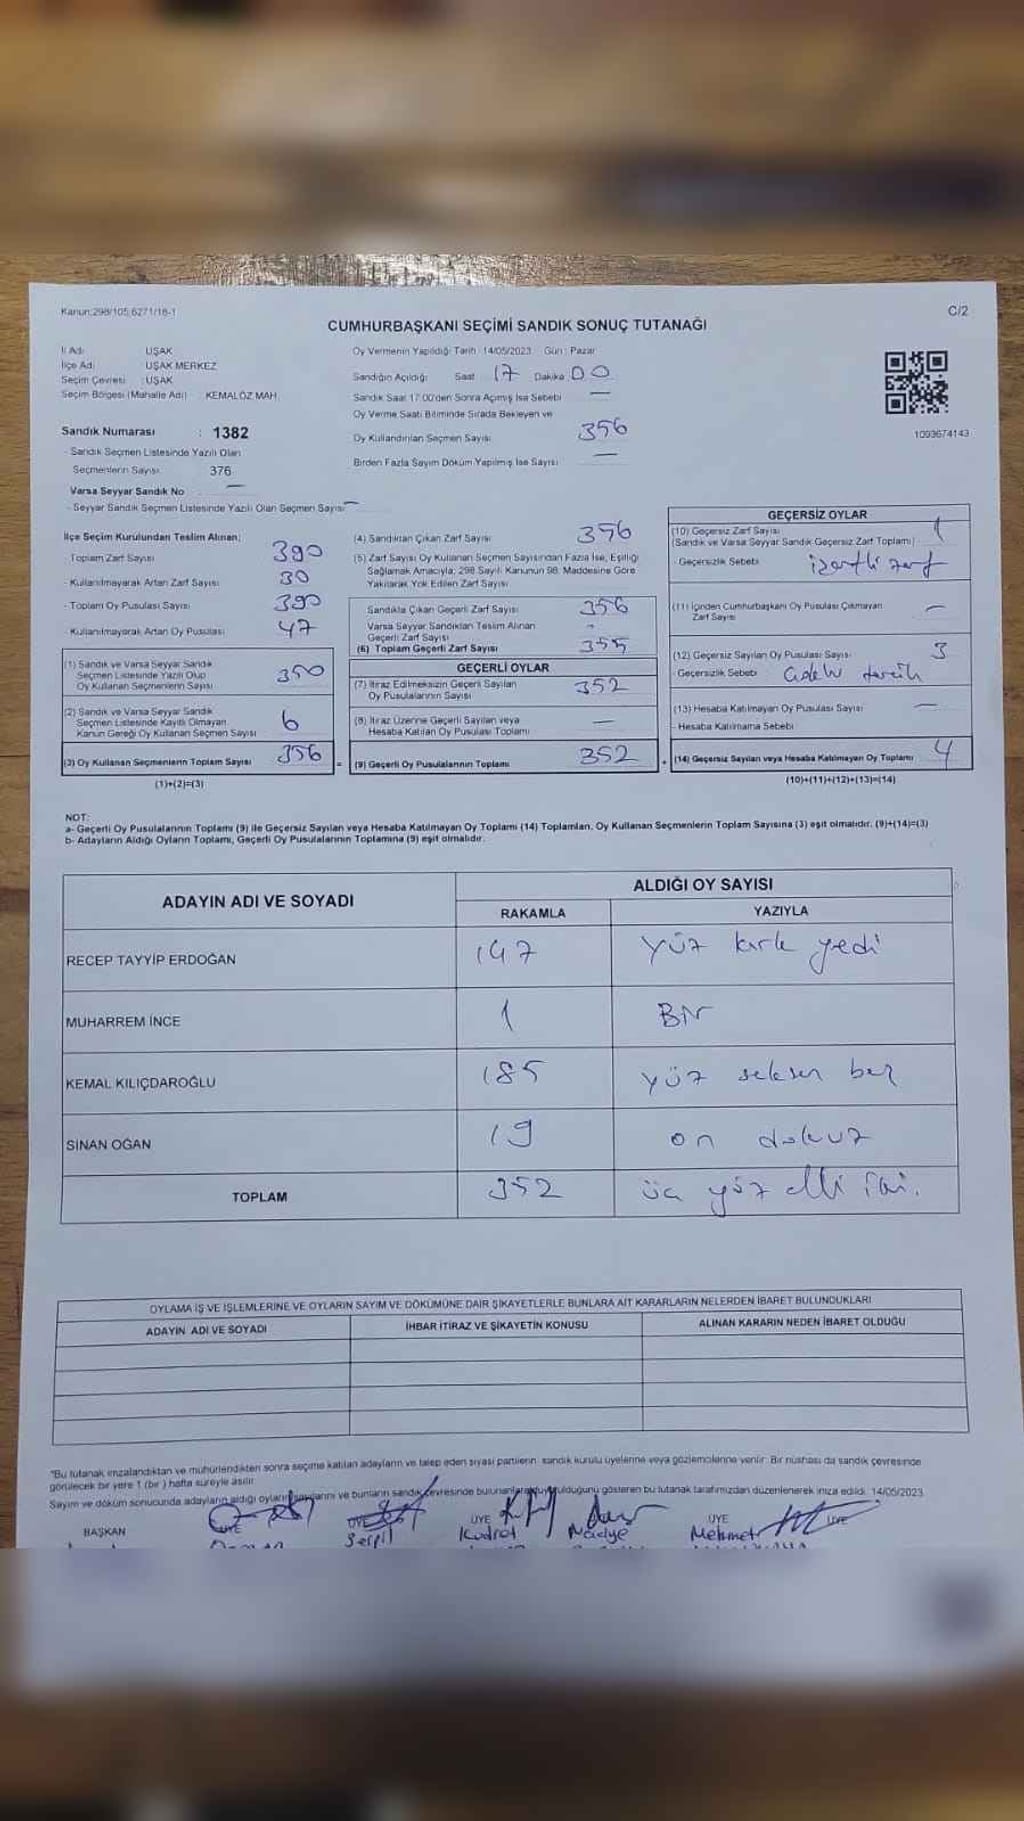 Kanun:298/105,6271/18-1
C/2
CUMHURBAŞKANI SEÇİMİ SANDIK SONUÇ TUTANAĞI
İl Adı UŞAK
İlçe Adı UŞAK MERKEZ
Seçim Çevresi : UŞAK
Seçim Bölgesi (Mahalle Adı) KEMALÖZ MAH.
Sandık Numarası : 1382
- Sandık Seçmen Listesinde Yazılı Olan
Seçmenlerin Sayısı 376
Varsa Seyyar Sandık No —
- Seyyar Sandık Seçmen Listesinde Yazılı Olan Seçmen Sayısı —
Oy Vermenin Yapıldığı Tarih : 14/05/2023 Gün : Pazar
Sandığın Açıldığı Saat 17 Dakika 00
Sandık Saat 17:00'den Sonra Açılmış İse Sebebi —
Oy Verme Saati Bitiminde Sırada Bekleyen ve
Oy Kullandırılan Seçmen Sayısı 356
Birden Fazla Sayım Döküm Yapılmış İse Sayısı —
1093674143
İlçe Seçim Kurulundan Teslim Alınan;
- Toplam Zarf Sayısı 390
- Kullanılmayarak Artan Zarf Sayısı 30
- Toplam Oy Pusulası Sayısı 390
- Kullanılmayarak Artan Oy Pusulası 47
(1) Sandık ve Varsa Seyyar Sandık
Seçmen Listesinde Yazılı Olup
Oy Kullanan Seçmenlerin Sayısı 350
(2) Sandık ve Varsa Seyyar Sandık
Seçmen Listesinde Kayıtlı Olmayan
Kanun Gereği Oy Kullanan Seçmen Sayısı 6
(3) Oy Kullanan Seçmenlerin Toplam Sayısı 356
(1)+(2)=(3)
(4) Sandıktan Çıkan Zarf Sayısı 356
(5) Zarf Sayısı Oy Kullanan Seçmen Sayısından Fazla İse, Eşitliği
Sağlamak Amacıyla, 298 Sayılı Kanunun 98. Maddesine Göre
Yakılarak Yok Edilen Zarf Sayısı
Sandıkta Çıkan Geçerli Zarf Sayısı 356
Varsa Seyyar Sandıktan Teslim Alınan
Geçerli Zarf Sayısı -
(6) Toplam Geçerli Zarf Sayısı 355
GEÇERLİ OYLAR
(7) İtiraz Edilmeksizin Geçerli Sayılan
Oy Pusulalarının Sayısı 352
(8) İtiraz Üzerine Geçerli Sayılan veya
Hesaba Katılan Oy Pusulası Toplamı —
(9) Geçerli Oy Pusulalarının Toplamı 352
GEÇERSİZ OYLAR
(10) Geçersiz Zarf Sayısı 1
(Sandık ve Varsa Seyyar Sandık Geçersiz Zarf Toplamı)
- Geçersizlik Sebebi işaretli zarf
(11) İçinden Cumhurbaşkanı Oy Pusulası Çıkmayan
Zarf Sayısı —
(12) Geçersiz Sayılan Oy Pusulası Sayısı 3
- Geçersizlik Sebebi tercih
(13) Hesaba Katılmayan Oy Pusulası Sayısı —
- Hesaba Katılmama Sebebi
(14) Geçersiz Sayılan veya Hesaba Katılmayan Oy Toplamı 4
(10)+(11)+(12)+(13)=(14)
NOT:
a- Geçerli Oy Pusulalarının Toplamı (9) ile Geçersiz Sayılan veya Hesaba Katılmayan Oy Toplamı (14) Toplamları, Oy Kullanan Seçmenlerin Toplam Sayısına (3) eşit olmalıdır. (9)+(14)=(3)
b- Adayların Aldığı Oyların Toplamı, Geçerli Oy Pusulalarının Toplamına (9) eşit olmalıdır.
ADAYIN ADI VE SOYADI ALDIĞI OY SAYISI
RAKAMLA YAZIYLA
RECEP TAYYİP ERDOĞAN 147 yüz kırk yedi
MUHARREM İNCE 1 Bir
KEMAL KILIÇDAROĞLU 185 yüz seksen beş
SİNAN OĞAN 19 on dokuz
TOPLAM 352 üç yüz elli iki.
OYLAMA İŞ VE İŞLEMLERİNE VE OYLARIN SAYIM VE DÖKÜMÜNE DAİR ŞİKAYETLERLE BUNLARA AİT KARARLARIN NELERDEN İBARET BULUNDUKLARI
ADAYIN ADI VE SOYADI İHBAR İTİRAZ VE ŞİKAYETİN KONUSU ALINAN KARARIN NEDEN İBARET OLDUĞU
*Bu tutanak imzalandıktan ve mühürlendikten sonra seçime katılan adayların ve talep eden siyasi partilerin sandık kurulu üyelerine veya gözlemcilerine verilir. Bir nüshası da sandık çevresinde
görülecek bir yere 1 (bir) hafta süreyle asılır.
Sayım ve döküm sonucunda adayların aldığı oyların sayılarını ve bunların sandık çevresinde bulunanlara duyurulduğunu gösteren bu tutanak tarafımızdan düzenlenerek imza edildi. 14/05/2023
BAŞKAN ÜYE ÜYE ÜYE ÜYE ÜYE
Serpil Kudret Nadiye Mehmet